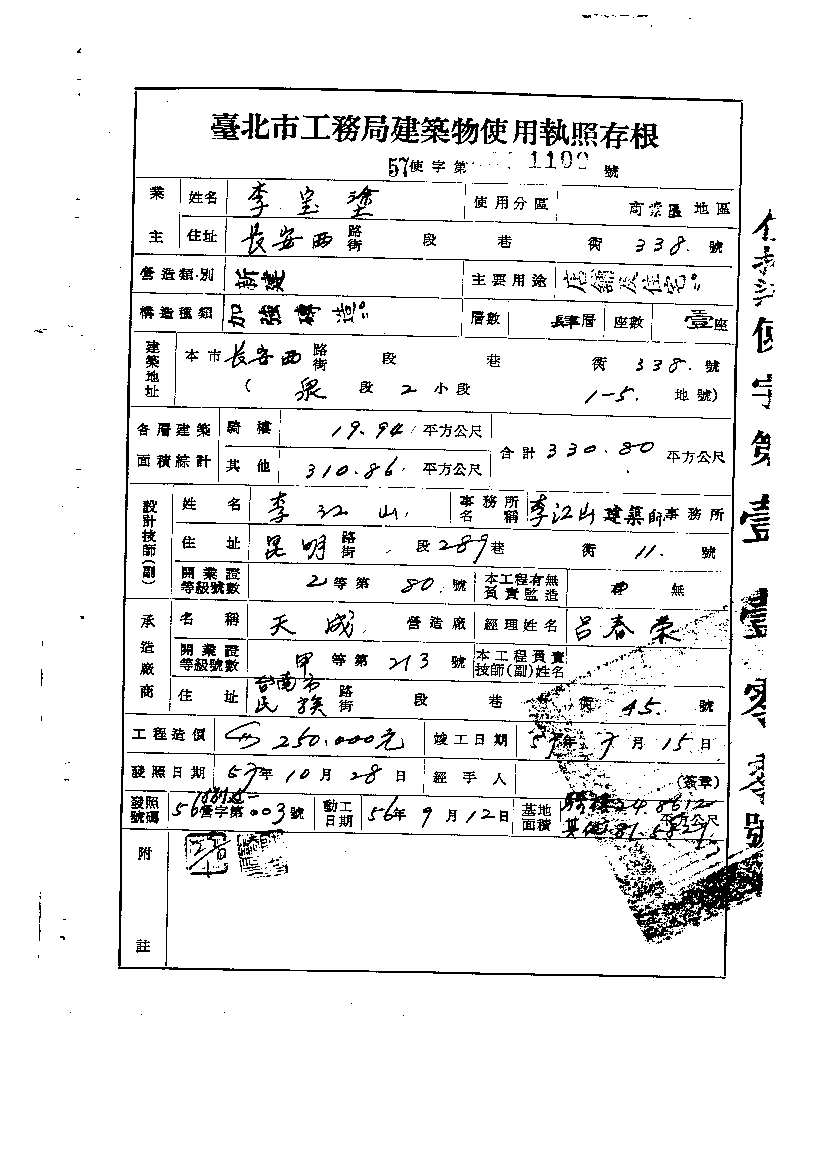 臺北市工務局建築物使用執照存根
57使字第 1100 號
業主 姓名 李宝塗 使用分區 商業區地區
住址 長安西路街 段 巷 衖 338. 號
營造類別 新建 主要用途 店舖及住宅
構造種類 加強磚造 層數 層 座數 壹座
建築地址 本市長安西路街 段 巷 衖 338. 號
( 泉 段 2 小段 1-5. 地號)
各層建築面積綜計 騎樓 19.94 平方公尺 合計 330.80 平方公尺
其他 310.86 平方公尺
設計技師(副) 姓名 李江山 事務所名稱 李江山建築師事務所
住址 昆明路街 段 289 巷 衖 11. 號
開業證等級號數 2 等第 80. 號 本工程有無負責監造 無
承造廠商 名稱 天成 營造廠 經理姓名 呂春榮
開業證等級號數 甲 等第 213 號 本工程負責技師(副)姓名
住址 台南市民族路街 段 巷 衖 45. 號
工程造價 250.000元 竣工日期 57年 9月 15日
發照日期 57年 10月 28日 經手人 (簽章)
發照號碼 56 營字第 003 號 動工日期 56年 9月 12日 基地面積 騎樓 平方公尺
其他
附註
使字第壹壹零零號